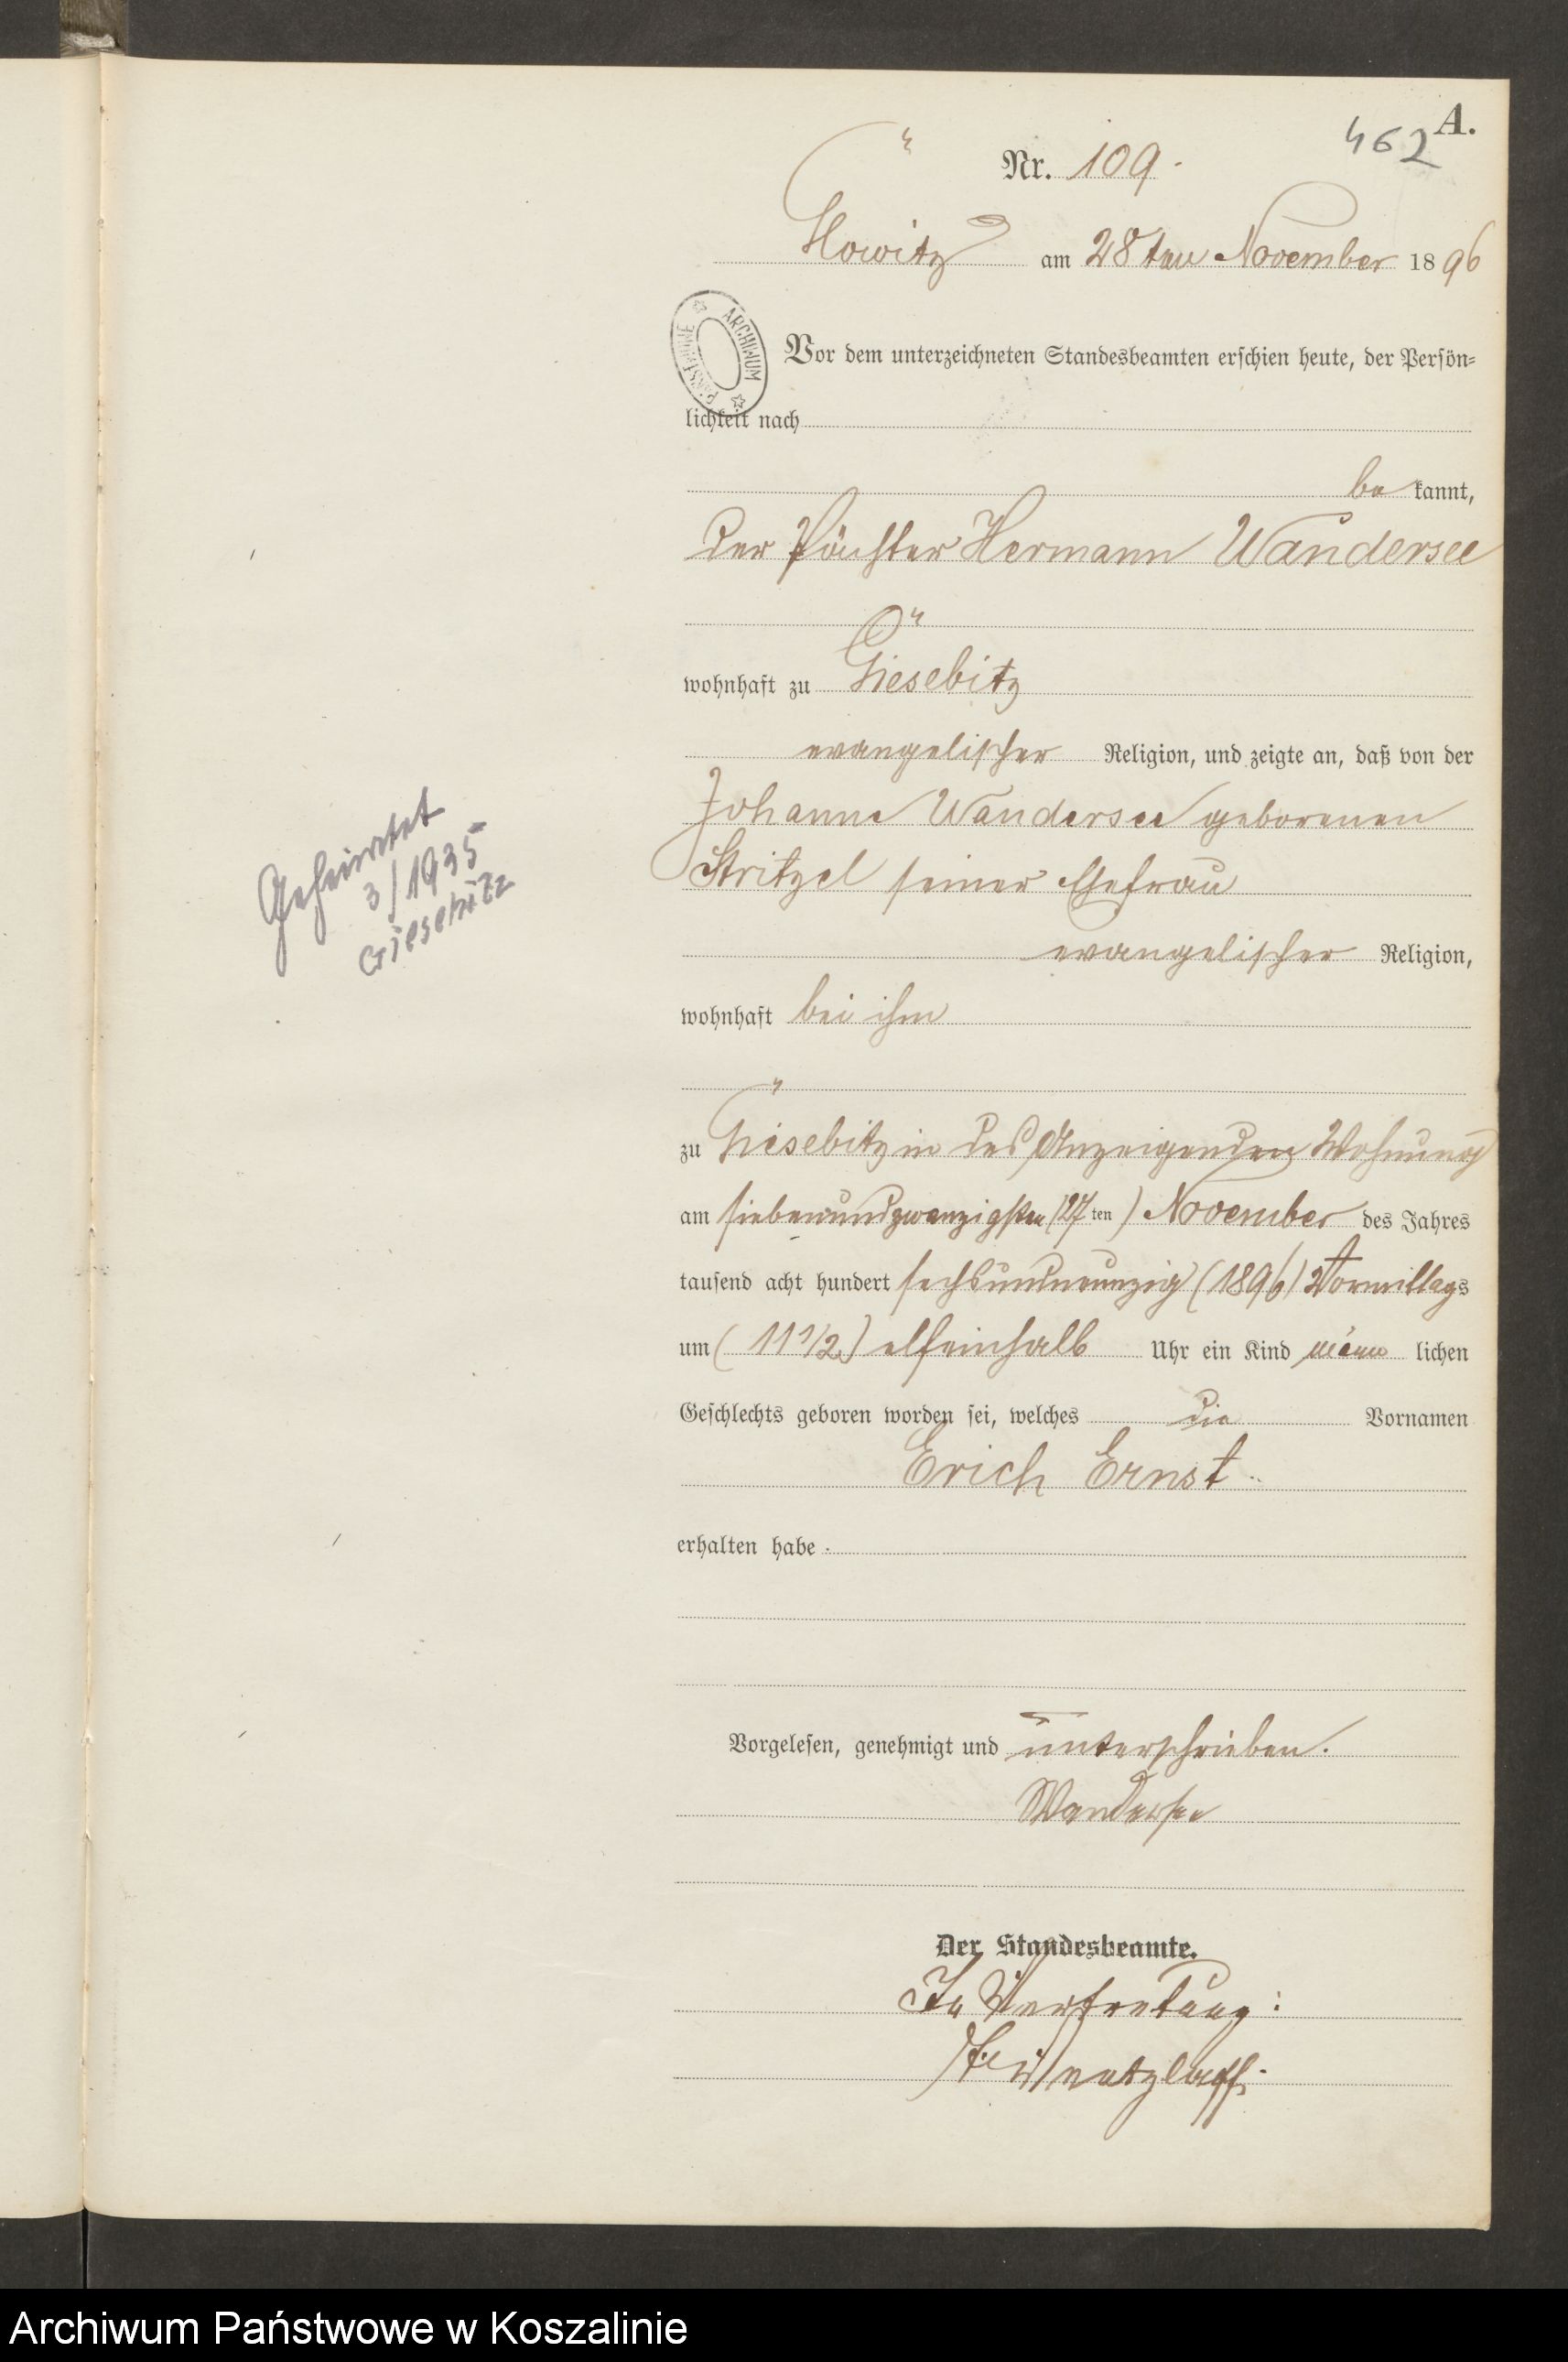 462 A.
Nr. 109.
Glowitz am 28ten November 1896
ARCHIWUM PAŃSTWOWE
Vor dem unterzeichneten Standesbeamten erschien heute, der Persön=
lichkeit nach
be kannt,
der Pächter Hermann Wandersee
wohnhaft zu Giesebitz
evangelischer Religion, und zeigte an, daß von der
Johanne Wandersee geborenen
Stritzel seiner Ehefrau
evangelischer Religion,
wohnhaft bei ihm
Geheiratet
3/1935
Giesebitz
zu Giesebitz in des Anzeigenden Wohnung
am siebenundzwanzigsten (27ten) November des Jahres
tausend acht hundert sechsundneunzig (1896) Vormittags
um (11 1/2) elfeinhalb Uhr ein Kind männ lichen
Geschlechts geboren worden sei, welches die Vornamen
Erich Ernst
erhalten habe.
Vorgelesen, genehmigt und unterschrieben.
Wandersee
Der Standesbeamte.
In Vertretung:
Archiwum Państwowe w Koszalinie